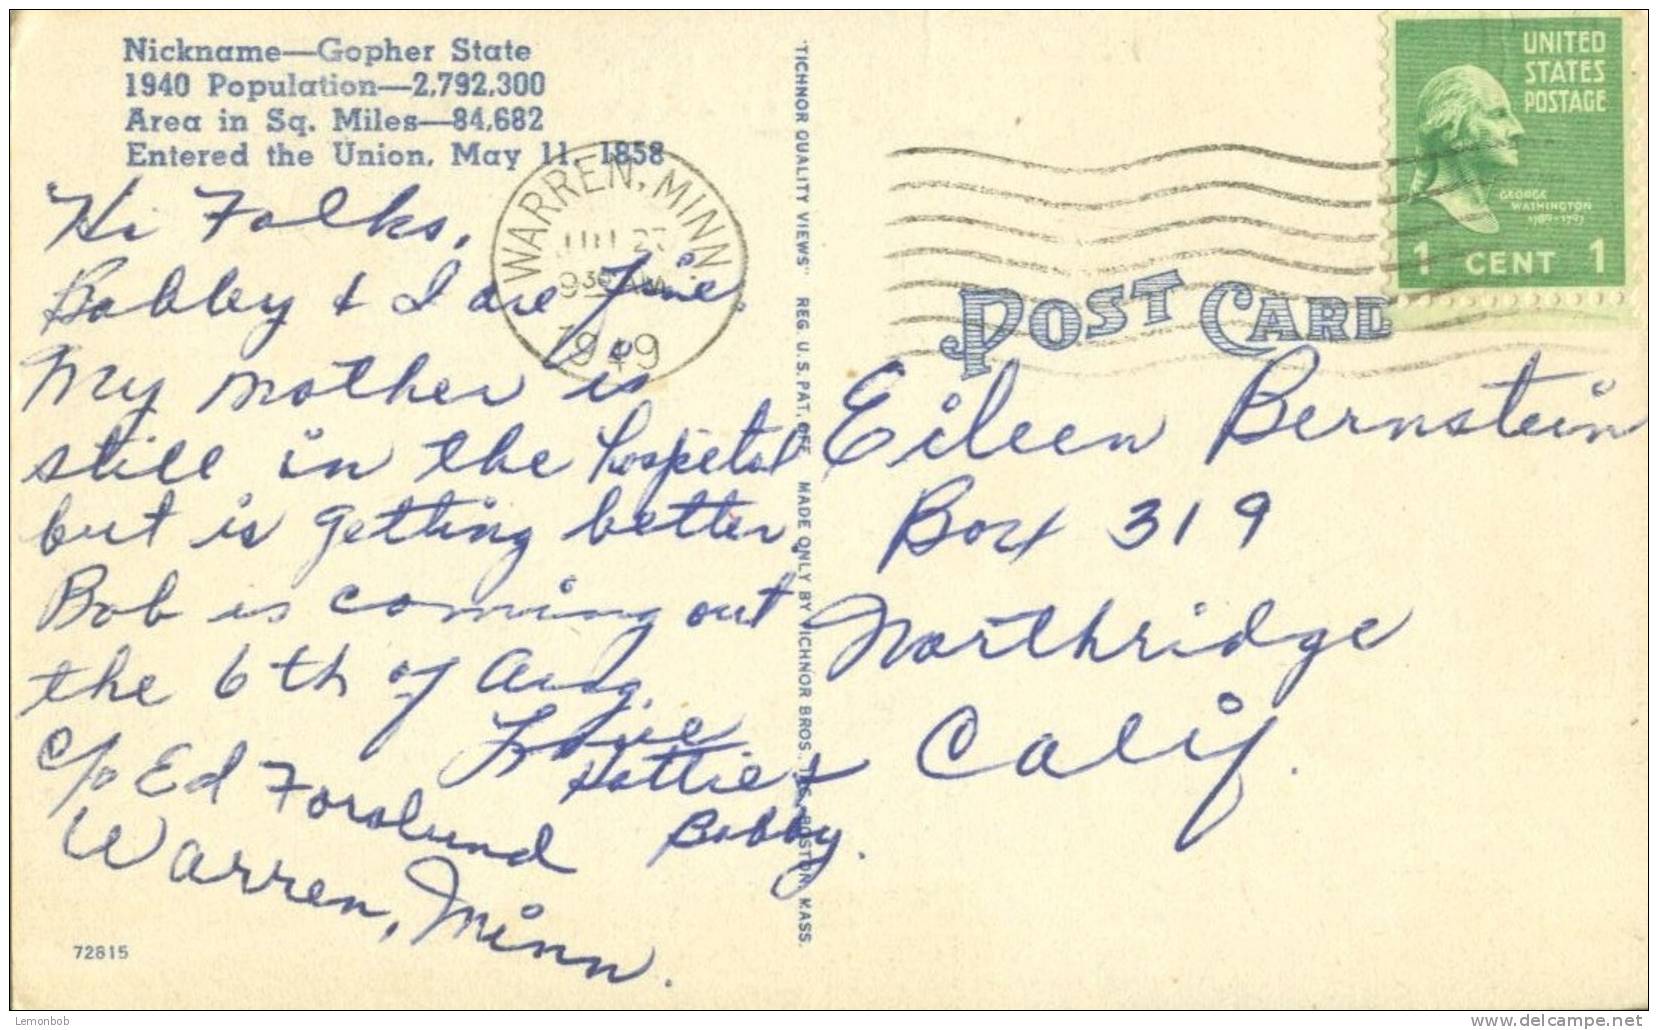 Nickname—Gopher State
1940 Population—2,792,300
Area in Sq. Miles—84,682
Entered the Union, May 11, 1858
Hi Folks,
Bobby & I are fine.
My mother is
still in the hospital
but is getting better,
Bob is coming out
the 6th of Aug.
Love
Hattie &
Bobby.
c/o Ed Forslund
Warren, Minn.
72815
WARREN, MINN.
930 AM
1949
"TICHNOR QUALITY VIEWS" REG. U.S. PAT. OFF. MADE ONLY BY TICHNOR BROS. INC., BOSTON, MASS.
UNITED
STATES
POSTAGE
GEORGE
WASHINGTON
1789-1797
1 CENT 1
POST CARD
Eileen Bernstein
Box 319
Northridge
Calif.
Lemonbob
www.delcampe.net